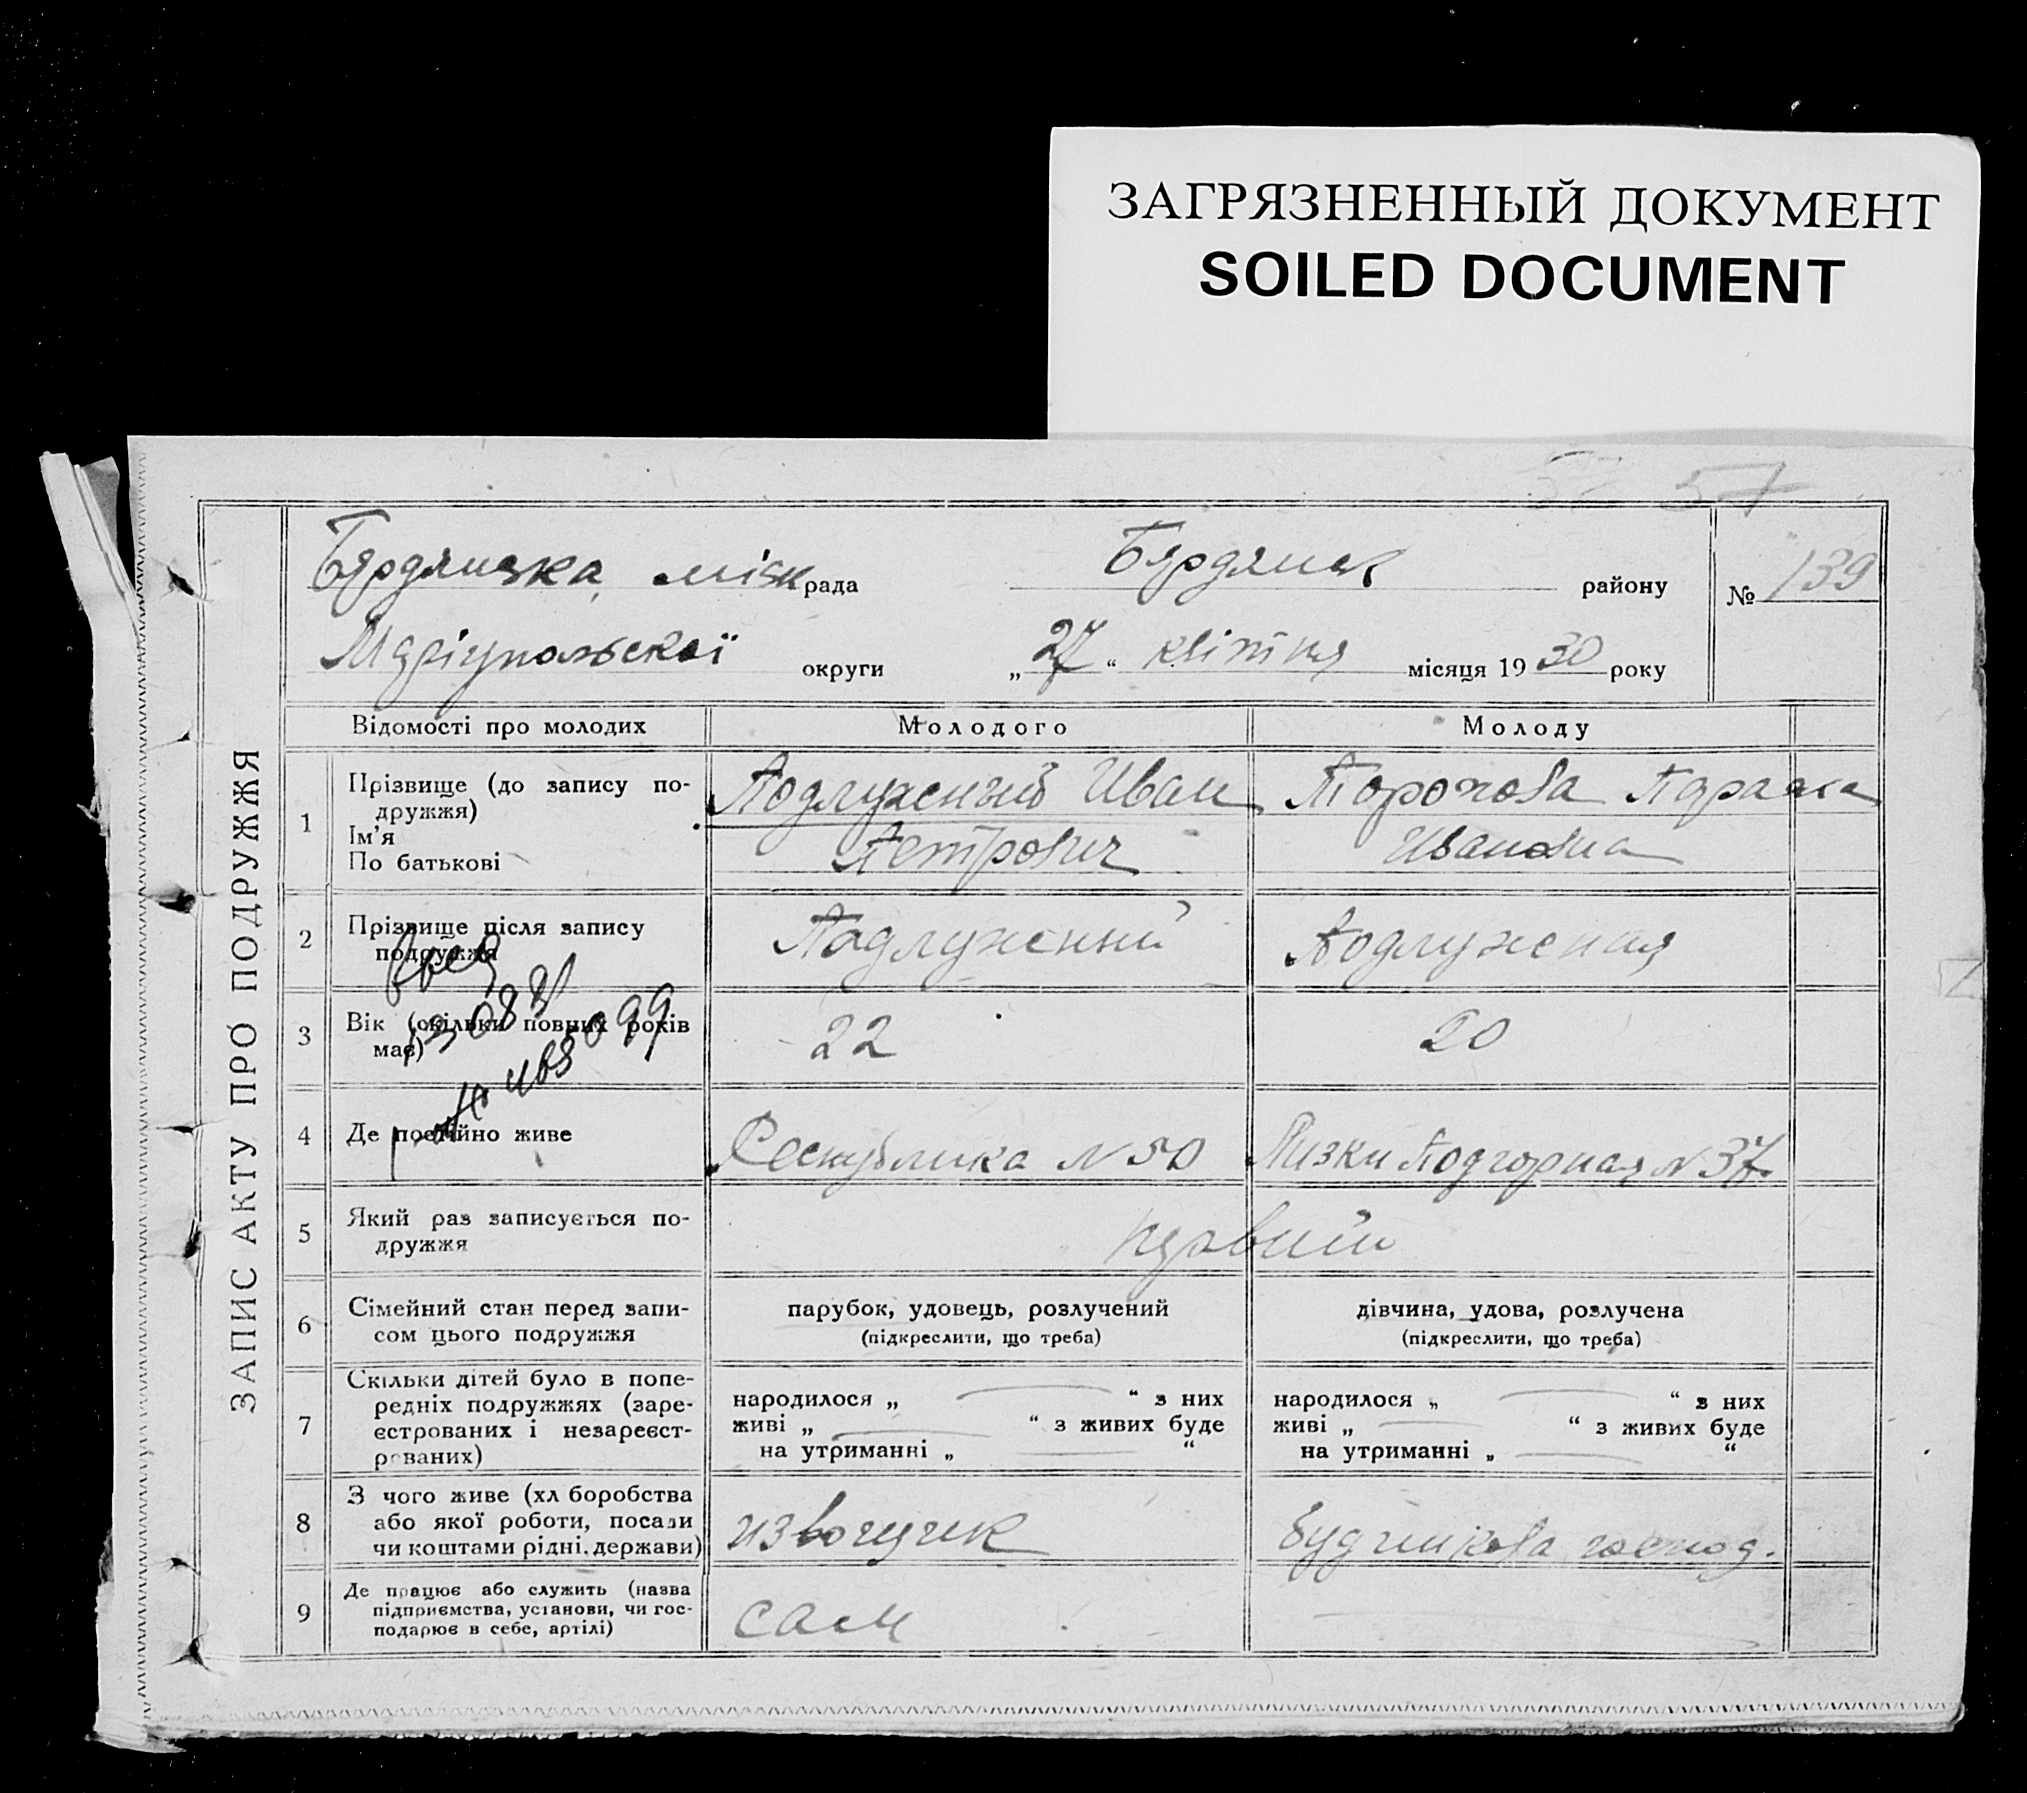 ЗАГРЯЗНЕННЫЙ ДОКУМЕНТ
SOILED DOCUMENT
57
ЗАПИС АКТУ ПРО ПОДРУЖЖЯ
Бердянська міск рада Бердянськ району № 139
Маріупольскої округи „27“ квітня місяця 1930 року
Відомості про молодих Молодого Молоду
1 Прізвище (до запису по-
дружжя)
Ім'я
По батькові
Подлужный Иван
Петрович
Торохова
Ивановна
2 Прізвище після запису
подружжя
Подлужний
Подлужная
3 Вік (скільки повних років
має)
22
20
4 Де постійно живе
Республика N 50
Лизки Подгорная N 37
5 Який раз записується по-
дружжя
первий
6 Сімейний стан перед запи-
сом цього подружжя
парубок, удовець, розлучений
(підкреслити, що треба)
дівчина, удова, розлучена
(підкреслити, що треба)
7 Скільки дітей було в попе-
редніх подружжях (заре-
єстрованих і незареєст-
рованих)
народилося „ “ з них
живі „ “ з живих буде
на утриманні „ “
народилося „ “ з них
живі „ “ з живих буде
на утриманні „ “
8 З чого живе (хліборобства
або якої роботи, посади
чи коштами рідні, держави)
извощик
господ.
9 Де працює або служить (назва
підприємства, установи, чи гос-
подарює в себе, артілі)
сам